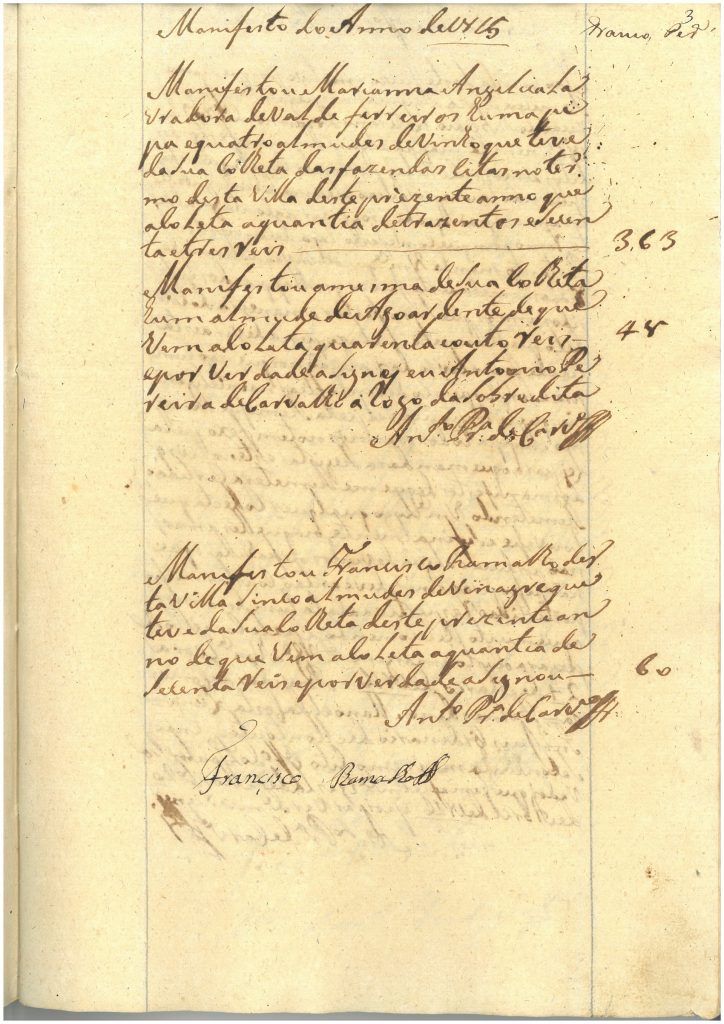 Manifesto do Anno de 1715
3
Manifestou Marianna Angelica La
vradora de Val de ferreiros huma pi
pa e quatro almudes de Vinho que teve
da sua colheta das fazendas citas no ter
mo desta Villa deste prezente anno que
a colecta a quantia de trazentos e secen
ta e tres reis
3,63
Manifestou a mesma de sua colheita
hum almude de Agoardente de que
Vem a colecta quarenta e outo reis
48
e por Verdade asignej eu Antonio Pe
reira de Carvalho a Rogo da Sobredita
Anto Pra de Carvo
Manifestou Francisco Ramalho des
ta Villa sinco almudes de Vinagre que
teve da sua colheta deste prezente an
no de que Vem a colecta a quantia de
secenta Reis e por Verdade asignou
60
Anto Pra de Carvo
Francisco Ramalho